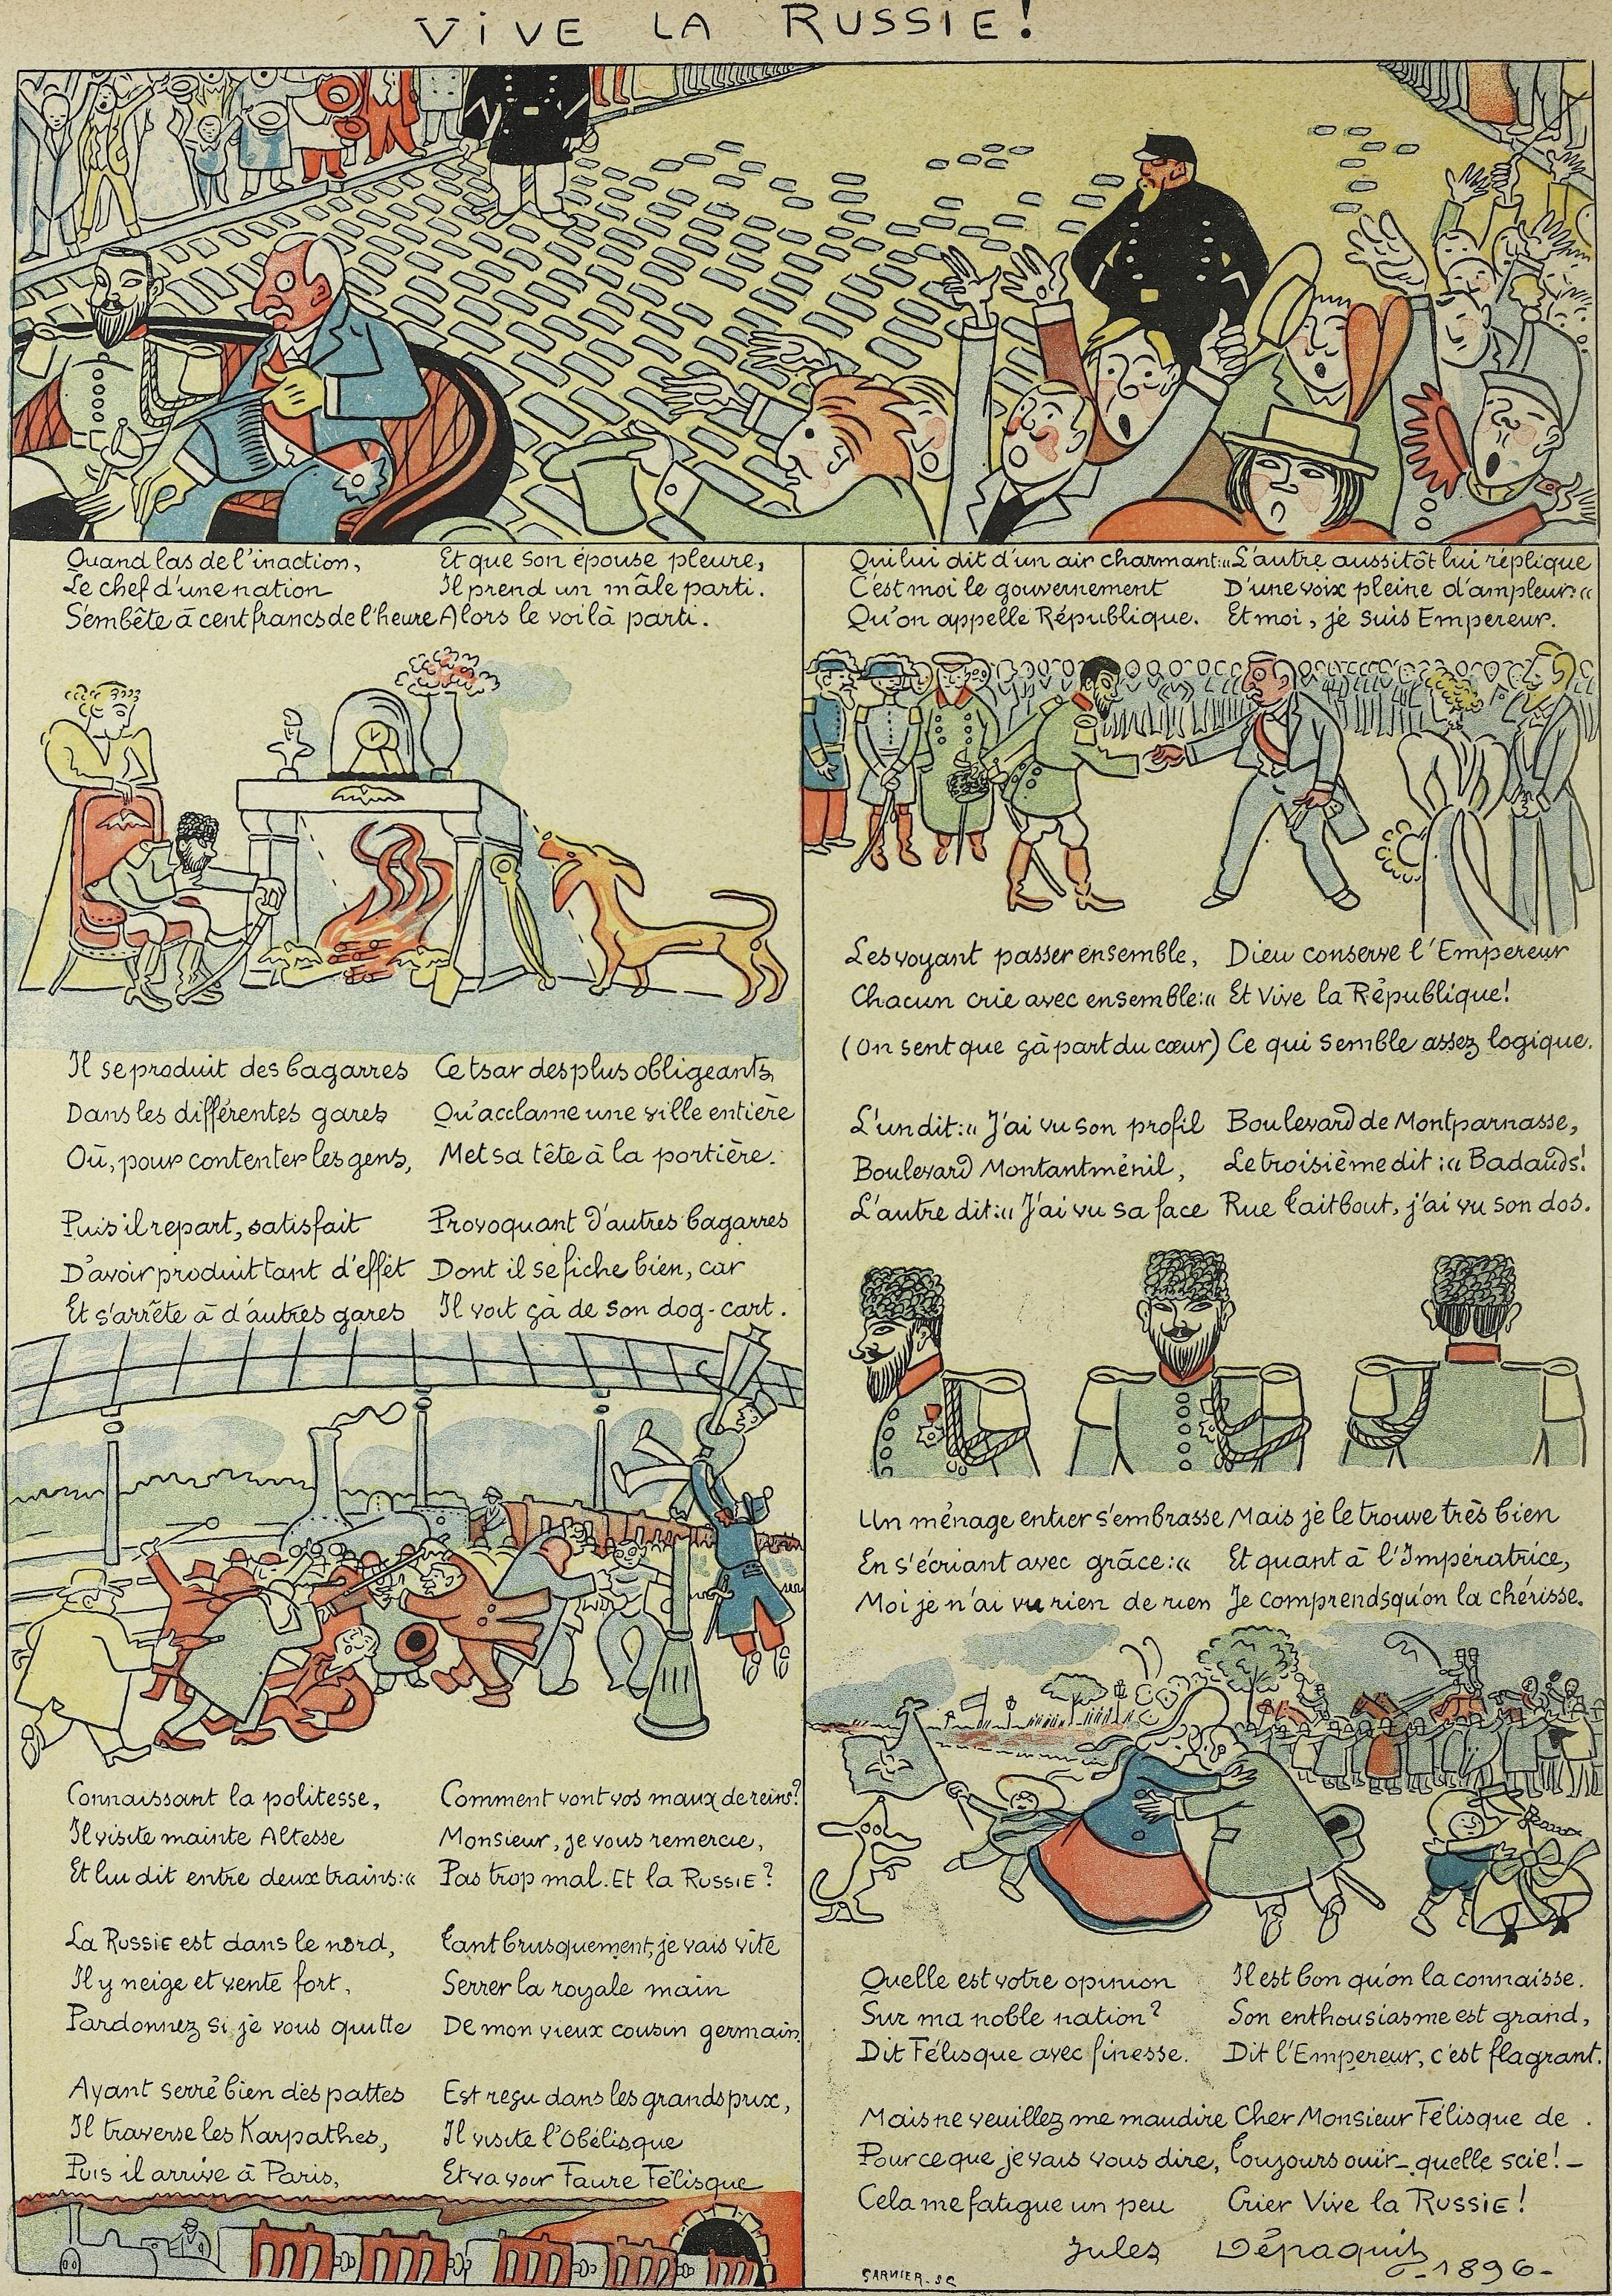 VIVE LA RUSSIE!
Quand las de l'inaction,
Le chef d'une nation
S'embête à cent francs de l'heure
Et que son épouse pleure,
Il prend un mâle parti.
Alors le voilà parti.
Il se produit des bagarres
Dans les différentes gares
Où, pour contenter les gens,
Ce tsar des plus obligeants,
Qu'acclame une ville entière
Met sa tête à la portière.
Puis il repart, satisfait
D'avoir produit tant d'effet
Et s'arrête à d'autres gares
Provoquant d'autres bagarres
Dont il se fiche bien, car
Il voit çà de son dog-cart.
Connaissant la politesse,
Il visite mainte Altesse
Et lui dit entre deux trains:«
Comment vont vos maux de reins?
Monsieur, je vous remercie,
Pas trop mal. Et la RUSSIE?
La RUSSIE est dans le nord,
Il y neige et vente fort.
Pardonnez si je vous quitte
Tant brusquement, je vais vite
Serrer la royale main
De mon vieux cousin germain.
Ayant serré bien des pattes
Il traverse les Karpathes,
Puis il arrive à Paris,
Est reçu dans les grands prix,
Il visite l'Obélisque
Et va voir Faure Félisque
Qui lui dit d'un air charmant:«
C'est moi le gouvernement
Qu'on appelle République.
L'autre aussitôt lui réplique
D'une voix pleine d'ampleur:«
Et moi, je suis Empereur.
Les voyant passer ensemble,
Chacun crie avec ensemble:«
(On sent que çà part du cœur)
Dieu conserve l'Empereur
Et Vive la République!
Ce qui semble assez logique.
L'un dit:« J'ai vu son profil
Boulevard Montantménil,
L'autre dit:« J'ai vu sa face
Boulevard de Montparnasse,
Le troisième dit:« Badauds!
Rue Taitbout, j'ai vu son dos.
Un ménage entier s'embrasse
En s'écriant avec grâce:«
Moi je n'ai vu rien de rien
Mais je le trouve très bien
Et quant à l'Impératrice,
Je comprends qu'on la chérisse.
Quelle est votre opinion
Sur ma noble nation?
Dit Félisque avec finesse.
Il est bon qu'on la connaisse.
Son enthousiasme est grand,
Dit l'Empereur, c'est flagrant.
Mais ne veuillez me maudire
Pour ce que je vais vous dire,
Cela me fatigue un peu
Cher Monsieur Félisque de
Toujours ouir-quelle scie!-
Crier Vive la RUSSIE!
Jules Dépaquit
-1896-
GARNIER. SC